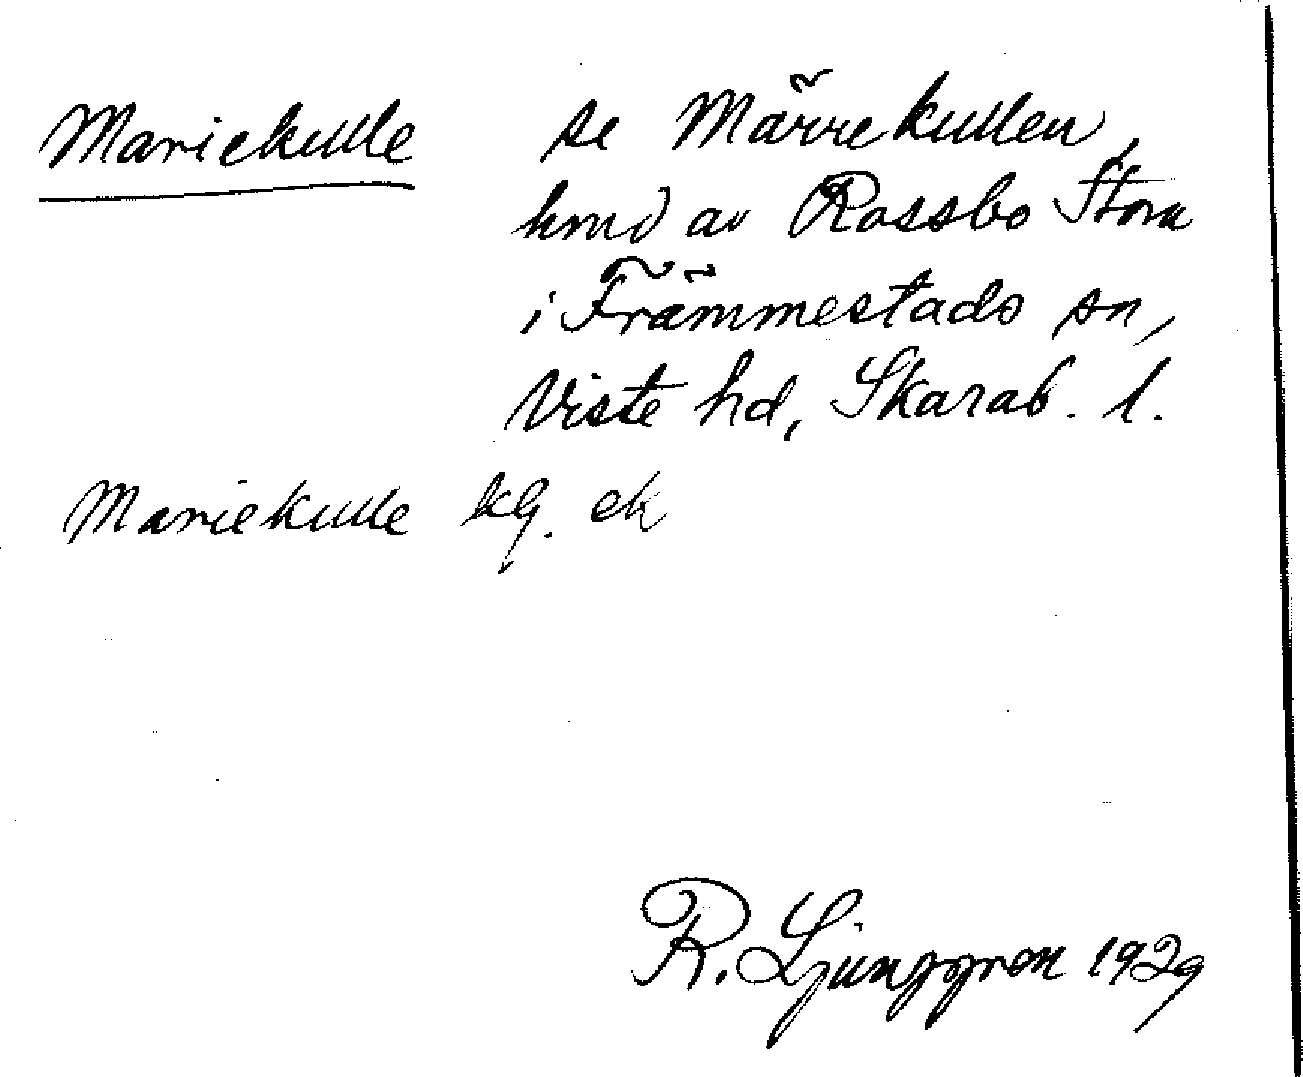 Mariekulle se Märrekullen,
hmd av Rossbo Stora
i Främmestads sn,
Viste hd, Skarab. l.
Mariekulle kg. ek
R. Ljunggren 1929